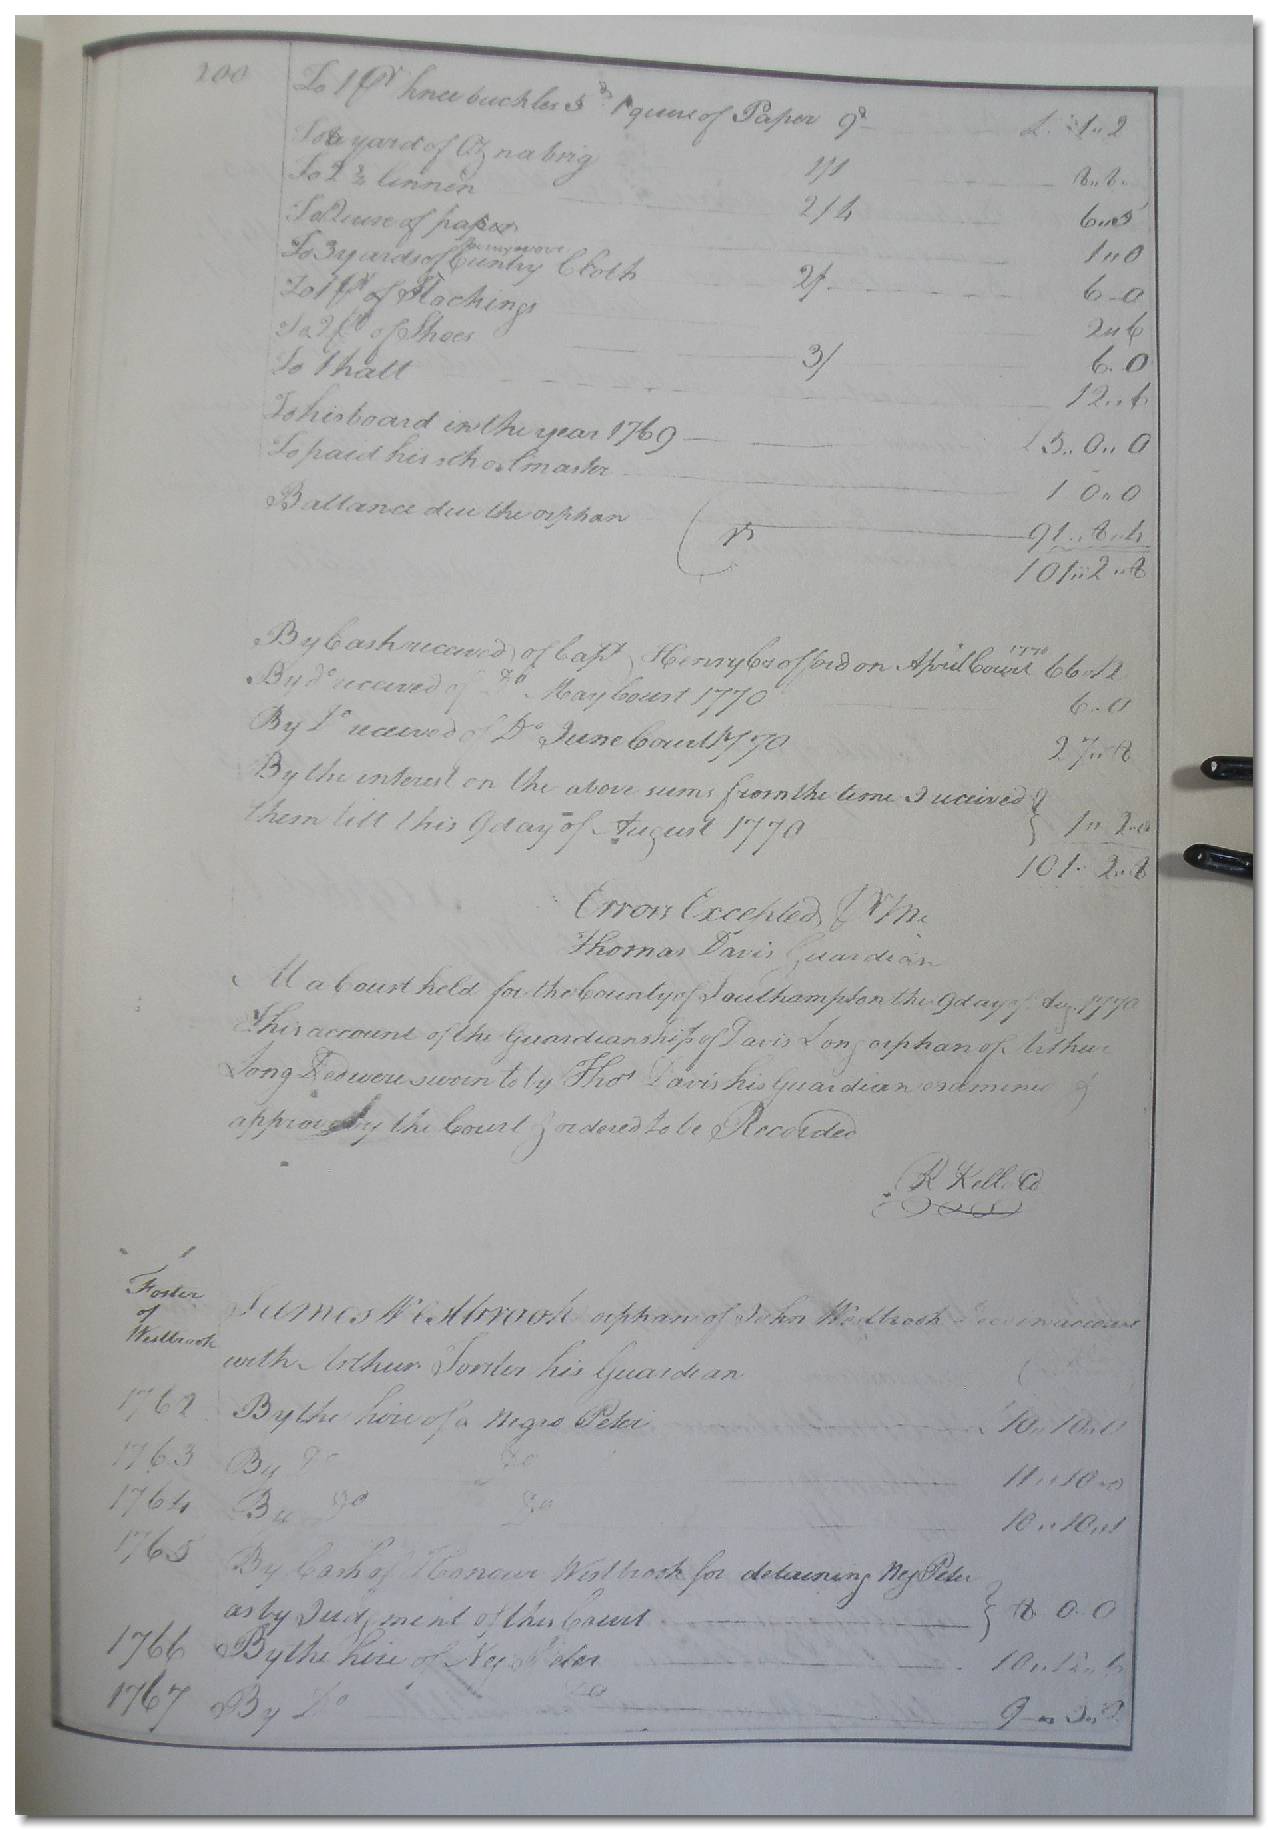 200
To 1 Pr knee buckles 5d 1 quire of Paper 9d £ 1..2
To 8 yards of Oznabrig 1/1 8..8
To 2 3/4 linnen 2/4 6..5
To 2 uire of paper 1..0
To 3 yards of Cuntry Cloth 2/ 6..0
To 1 Pr of Stockings 2..6
To 2 Pr of Shoes 3/ 6..0
To 1 hatt 12..6
To his board in the year 1769 £5..0..0
To paid his schoolmaster 1 0..0
Ballance due the orphan 91..8..4
101..2..8
1770
By Cash received of Capt Henry on April Court 66..12
By do received of Do May Court 1770 6..0
By Do received of Do June Court 1770 27..8
By the interest on the above sums from the time I received
them till this 9 day of August 1770 1..2..0
101..2..8
Errors Excepted Pr Me
Thomas Davis Guardian
At a Court held for the County of Southampton the 9 day of Aug. 1770
This account of the Guardianship of Davis Long orphan of Arthur
Long Decd were sworn to by Thos Davis his Guardian examined &
approved by the Court & ordered to be Recorded
R Kell. Co
Foster
of
Westbrook
James Westbrook orphan of John Westbrook Decd in account
with Arthur Foster his Guardian
1762 By the hire of a Negro Peter £10..10..0
1763 By Do Do 11..10..0
1764 By Do Do 10..10..1
1765 By Cash of Honour Westbrook for detaining Neg Peter
as by Judgment of this Court 8 0..0
1766 By the hire of Neg Peter 10..12..6
1767 By Do Do 9